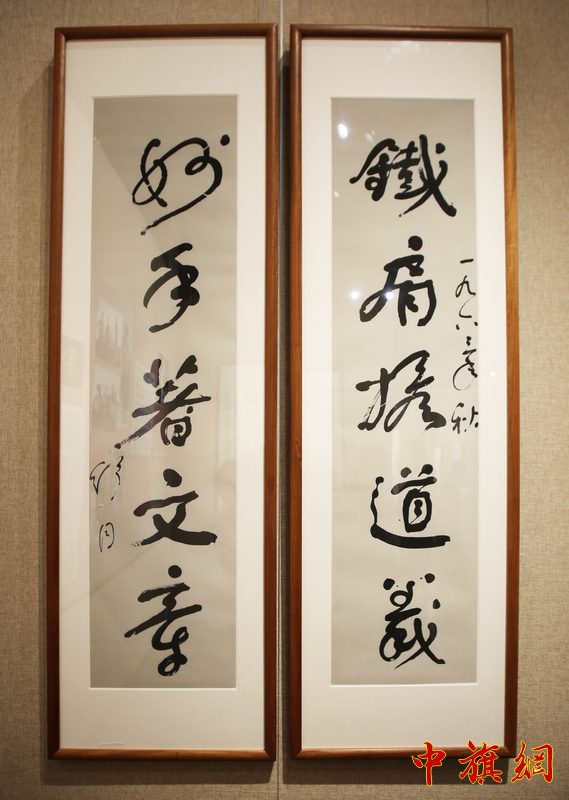 鐵肩擔道義
一九六二年秋
妙手著文章
舒同
中旗網